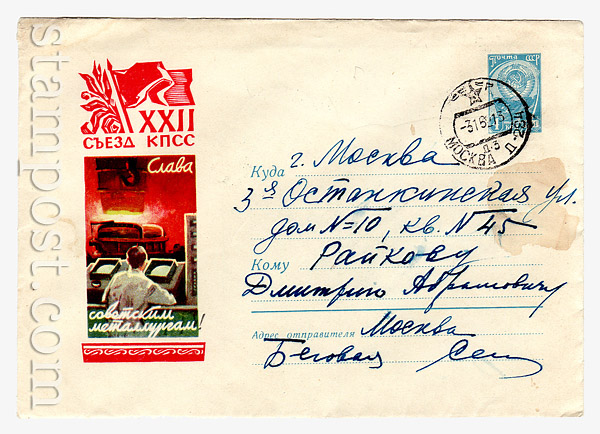 stamp-post.com
XXII
СЪЕЗД КПСС
Слава
советским
металлургам!
ПОЧТА СССР
МОСКВА
Куда г. Москва
3я Останкинская ул.
дом N=10, кв. N 45
Кому Райкову
Дмитрию Абрамовичу
Адрес отправителя Москва
Беговая